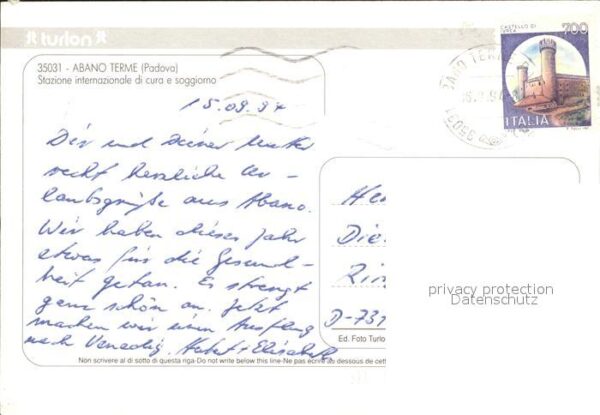 turlon
35031 - ABANO TERME (Padova)
Stazione internazionale di cura e soggiorno
CASTELLO DI IVREA
700
ITALIA
15.09.94
Dir und Deiner Mutter
recht herzliche Ur-
laubsgrüße aus Abano.
Wir haben dieses Jahr
etwas für die Gesund-
heit getan. Es strengt
ganz schön an. Jetzt
machen wir einen Ausflug
nach Venedig. Hubert + Elisabeth
He
Die
Rin
D-737
privacy protection
Datenschutz
Ed. Foto Turlo
Non scrivere al di sotto di questa riga-Do not write below this line-Ne pas écrire au dessous de cett